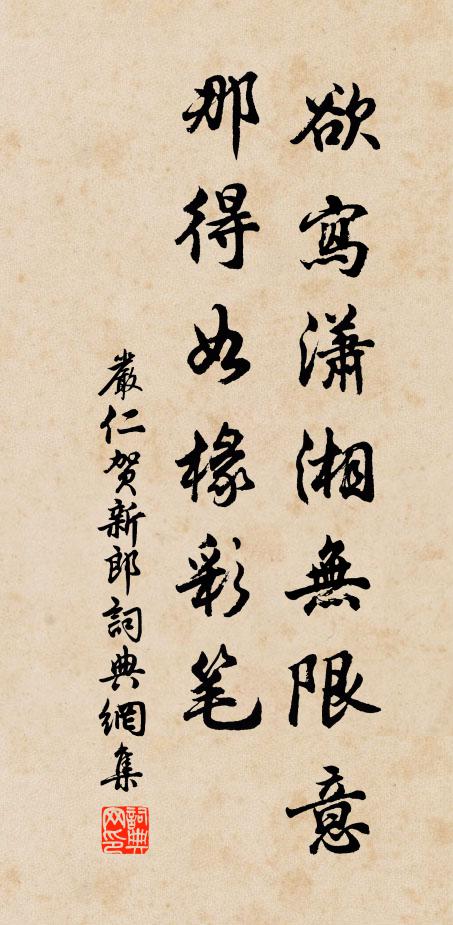 欲寫瀟湘無限意
那得如椽彩笔
嚴仁賀新郎詞典網集
詞典网印